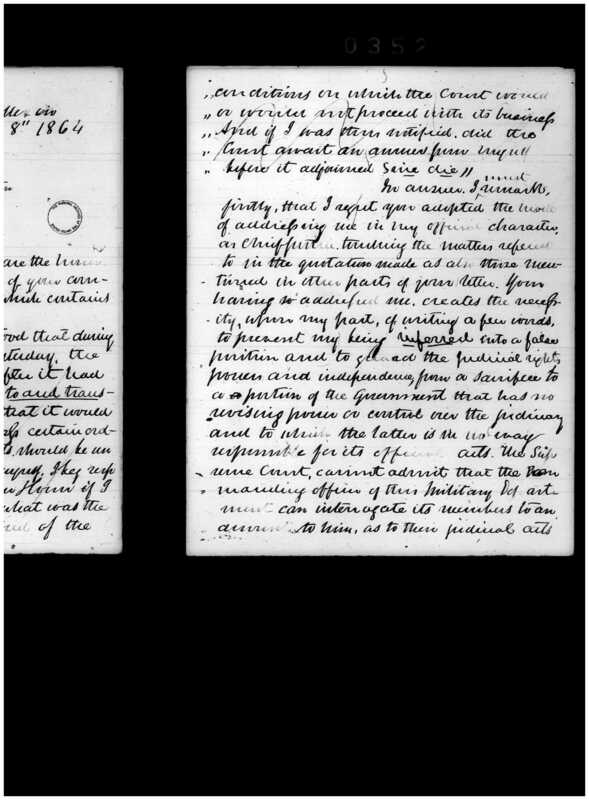 0352
8" 1864
are the
of your com-
which contains
ood that during
turday, the
fter it had
to and trans-
that it would
certain ord-
should be
if I
what was the
of the
5
" conditions on which the Court would
" or would not proceed with its business
" And if I was then notified, did the
" Court await an answer from myself
" before it adjourned Sine die"
In answer, I must remark,
firstly, that I regret you adopted the mode
of addressing me in my official character,
as Chief Justice, touching the matters referred
to in the quotation made as also those men-
tioned in other parts of your letter. Your
having so addressed me, creates the necess-
ity, upon my part, of writing a few words,
to prevent my being inferred into a false
position and to guard the judicial rights
powers and independence, from a sacrifice to
a portion of the Government that has no
revising power or control over the judiciary
and to which the latter is in no way
responsible for its official acts. The Sup-
reme Court, cannot admit that the Com
manding officer of this Military Depart
ment can interrogate its members to an
answer to him, as to their judicial acts